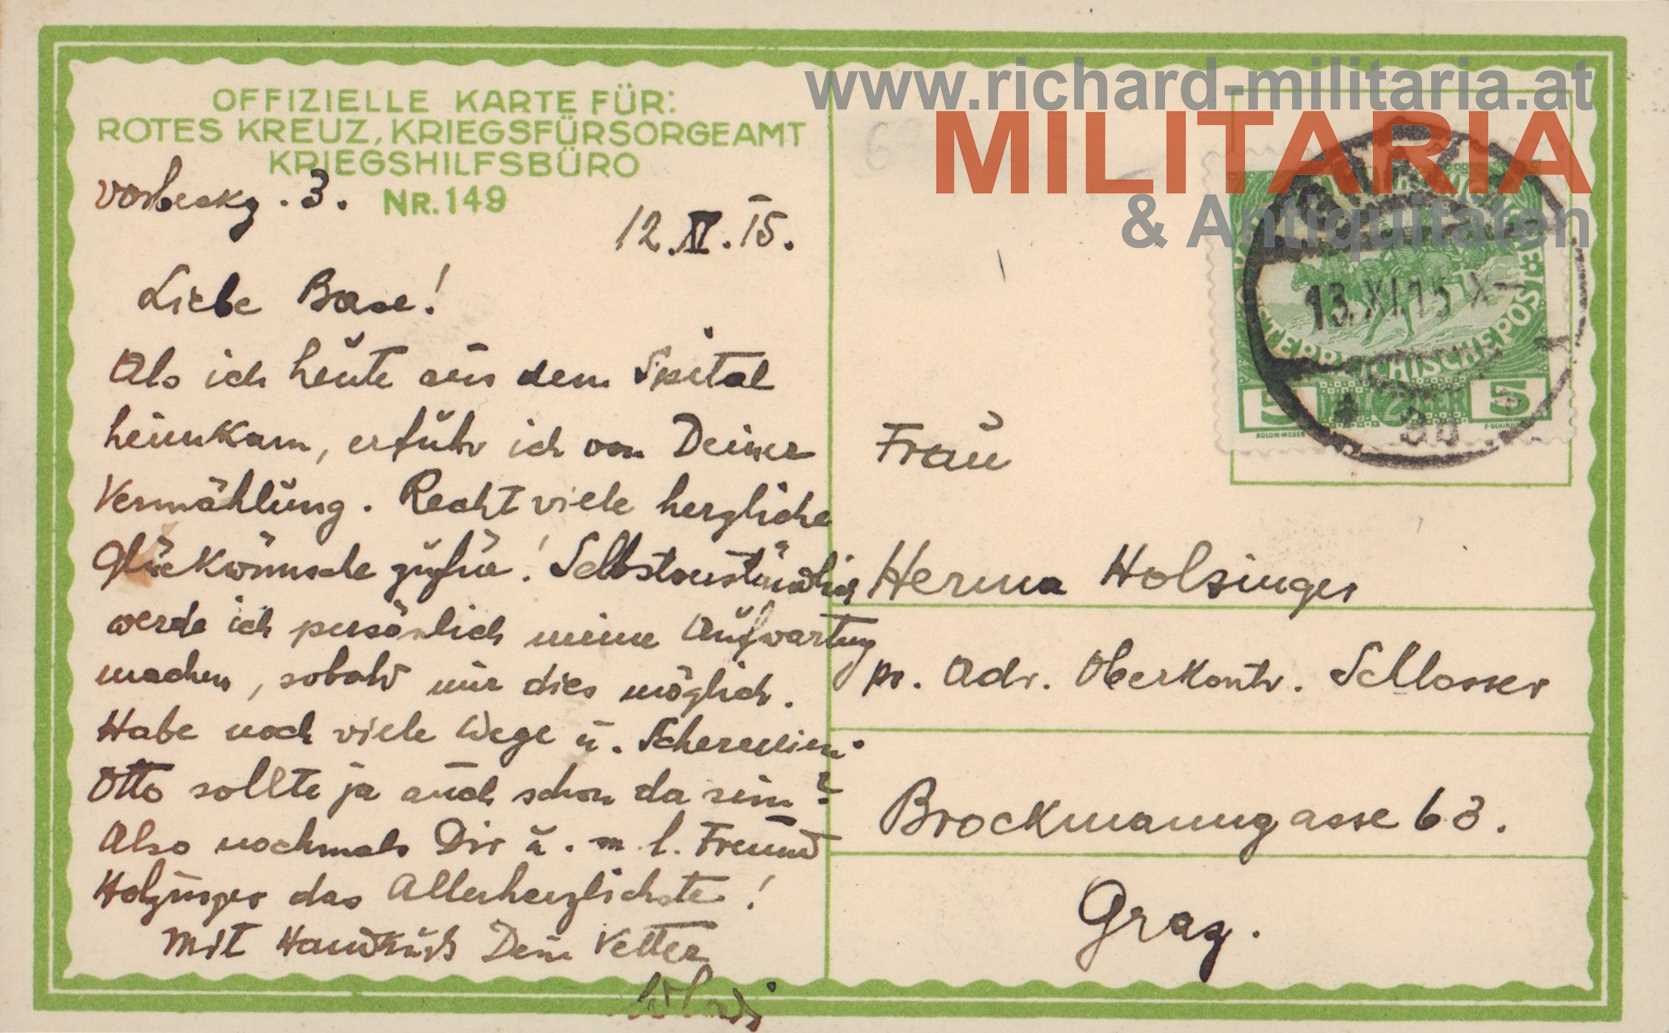 www.richard-militaria.at
MILITARIA
& Antiquitäten
OFFIZIELLE KARTE FÜR:
ROTES KREUZ, KRIEGSFÜRSORGEAMT
KRIEGSHILFSBÜRO
NR. 149
12. XI. 15.
Liebe Base!
Als ich heute aus dem Spital
heimkam, erfuhr ich von Deiner
Vermählung. Recht viele herzliche
Glückwünsche zuführ! Selbstverständlich
werde ich persönlich meine Aufwartung
machen, sobald mir dies möglich.
Habe noch viele Wege u.
Otto sollte ja auch schon da sein?
Also nochmals Dir u. m. l. Freund
Holzinger das Allerherzlichste!
Mit Handkuß Dein Vetter
13.XI.15
5 5
Frau
Herma Holzinger
pr. Adr. Oberkontr. Schlosser
Brockmanngasse 63.
Graz.